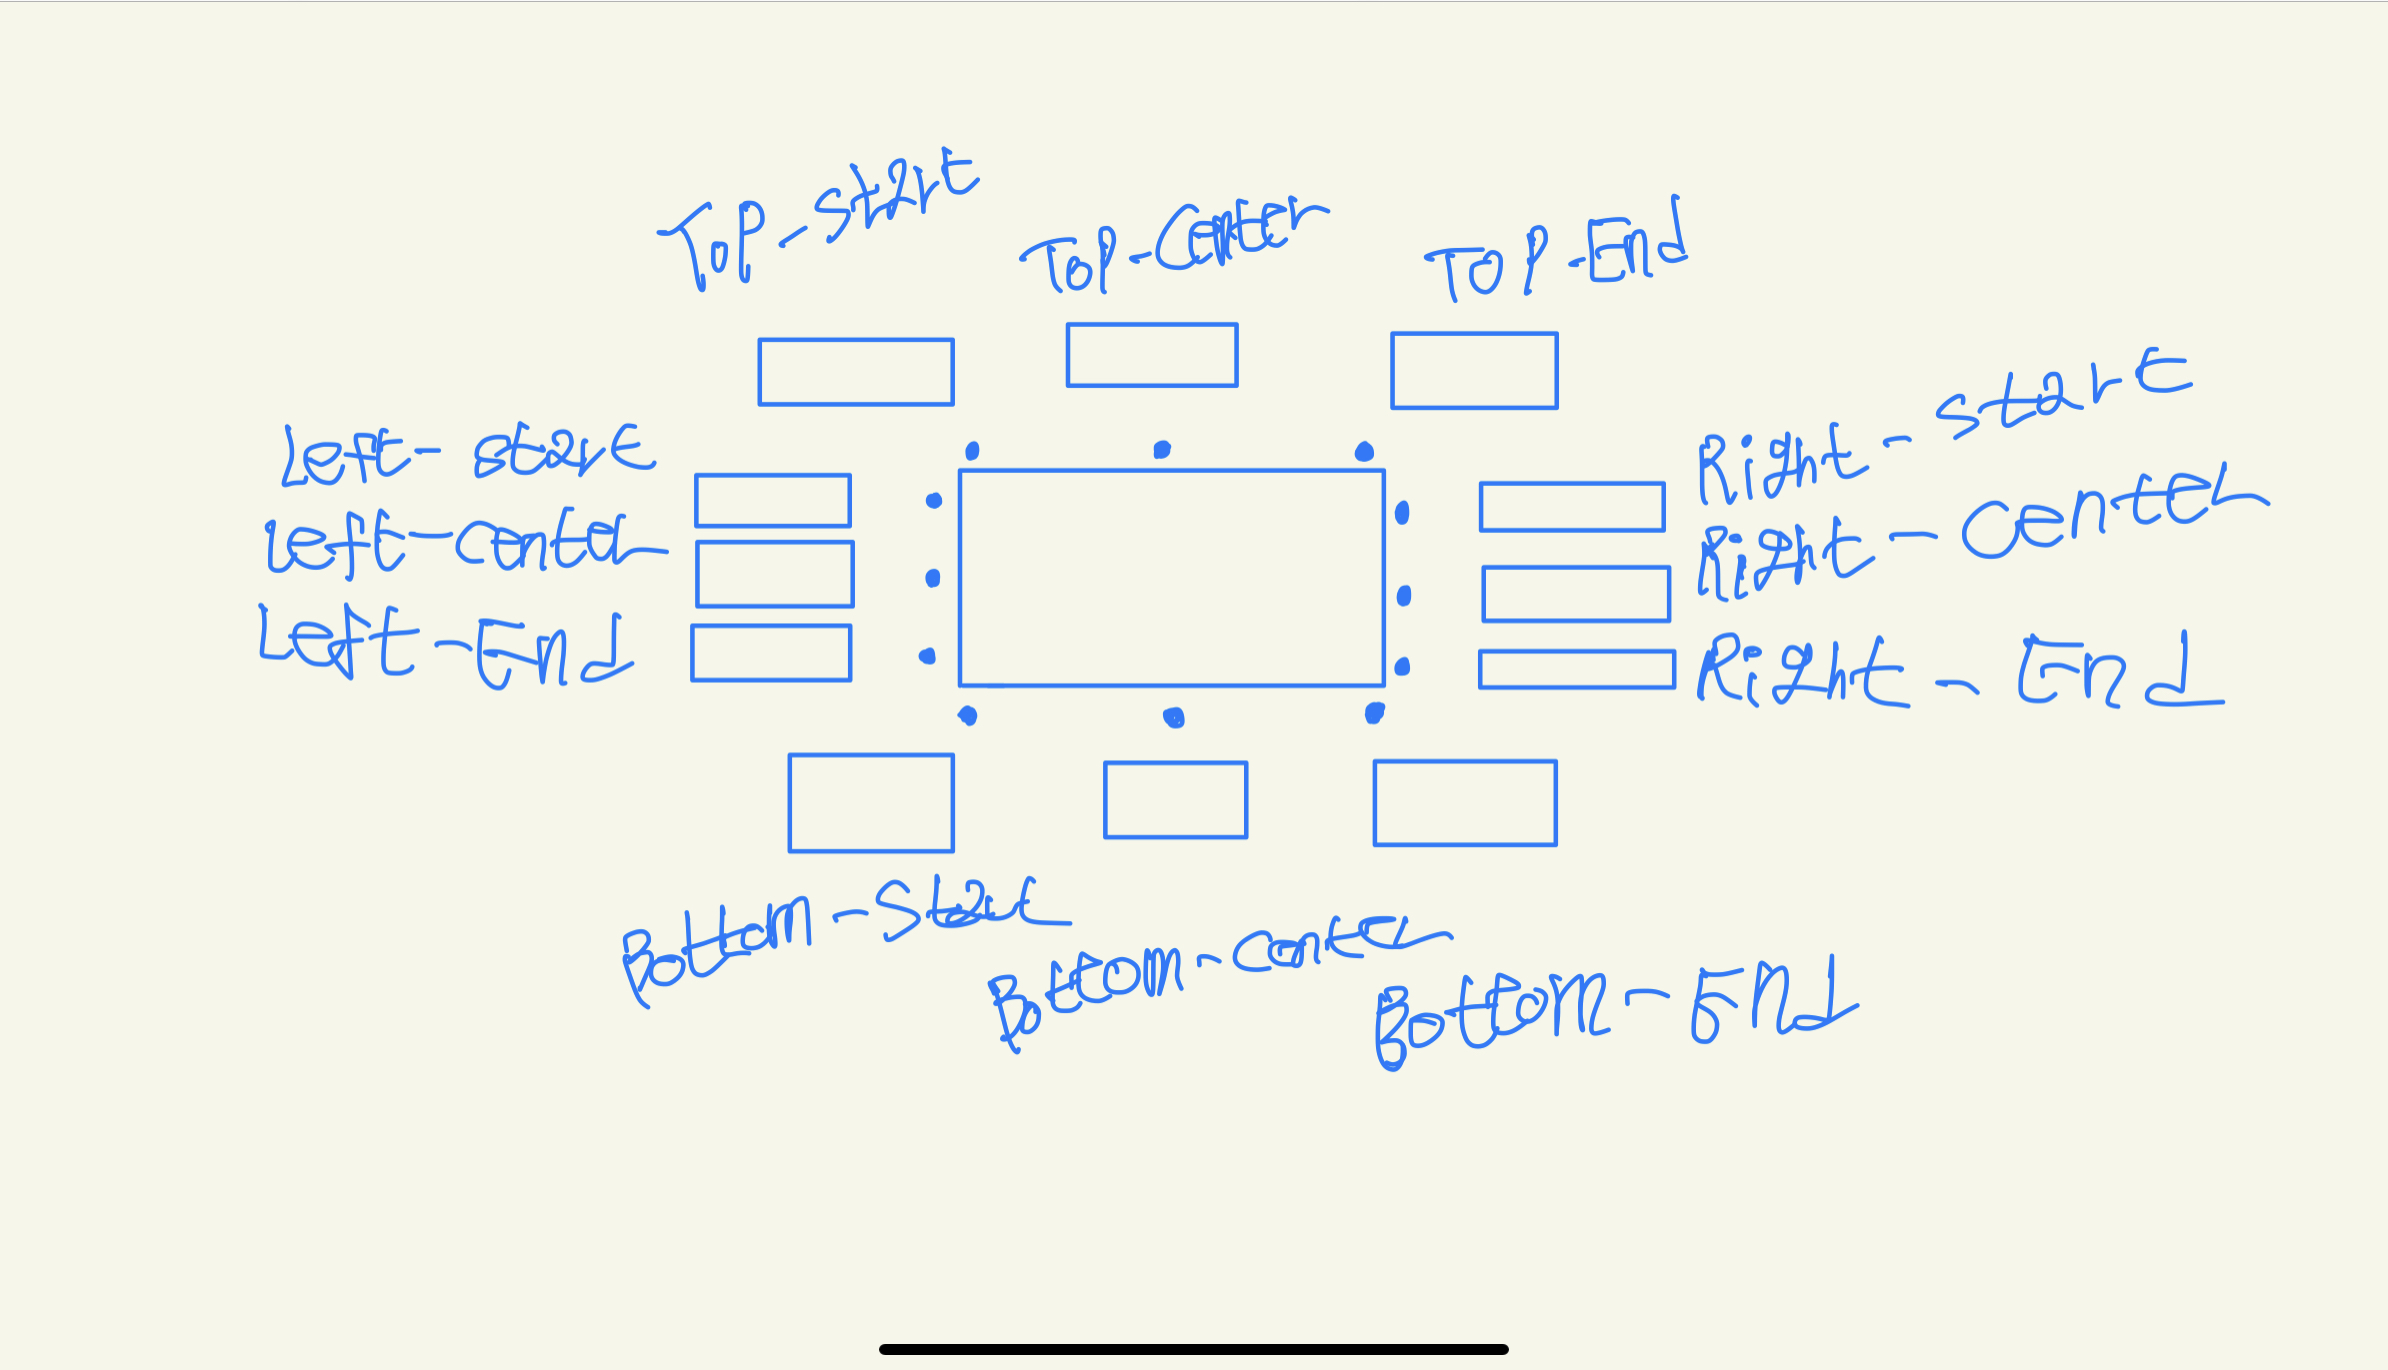 Top-start
Top-Center
TOP-End
Left-start
Left-center
Left-End
Right-start
Right-center
Right-End
Bottom-Start
Bottom-center
Bottom-End